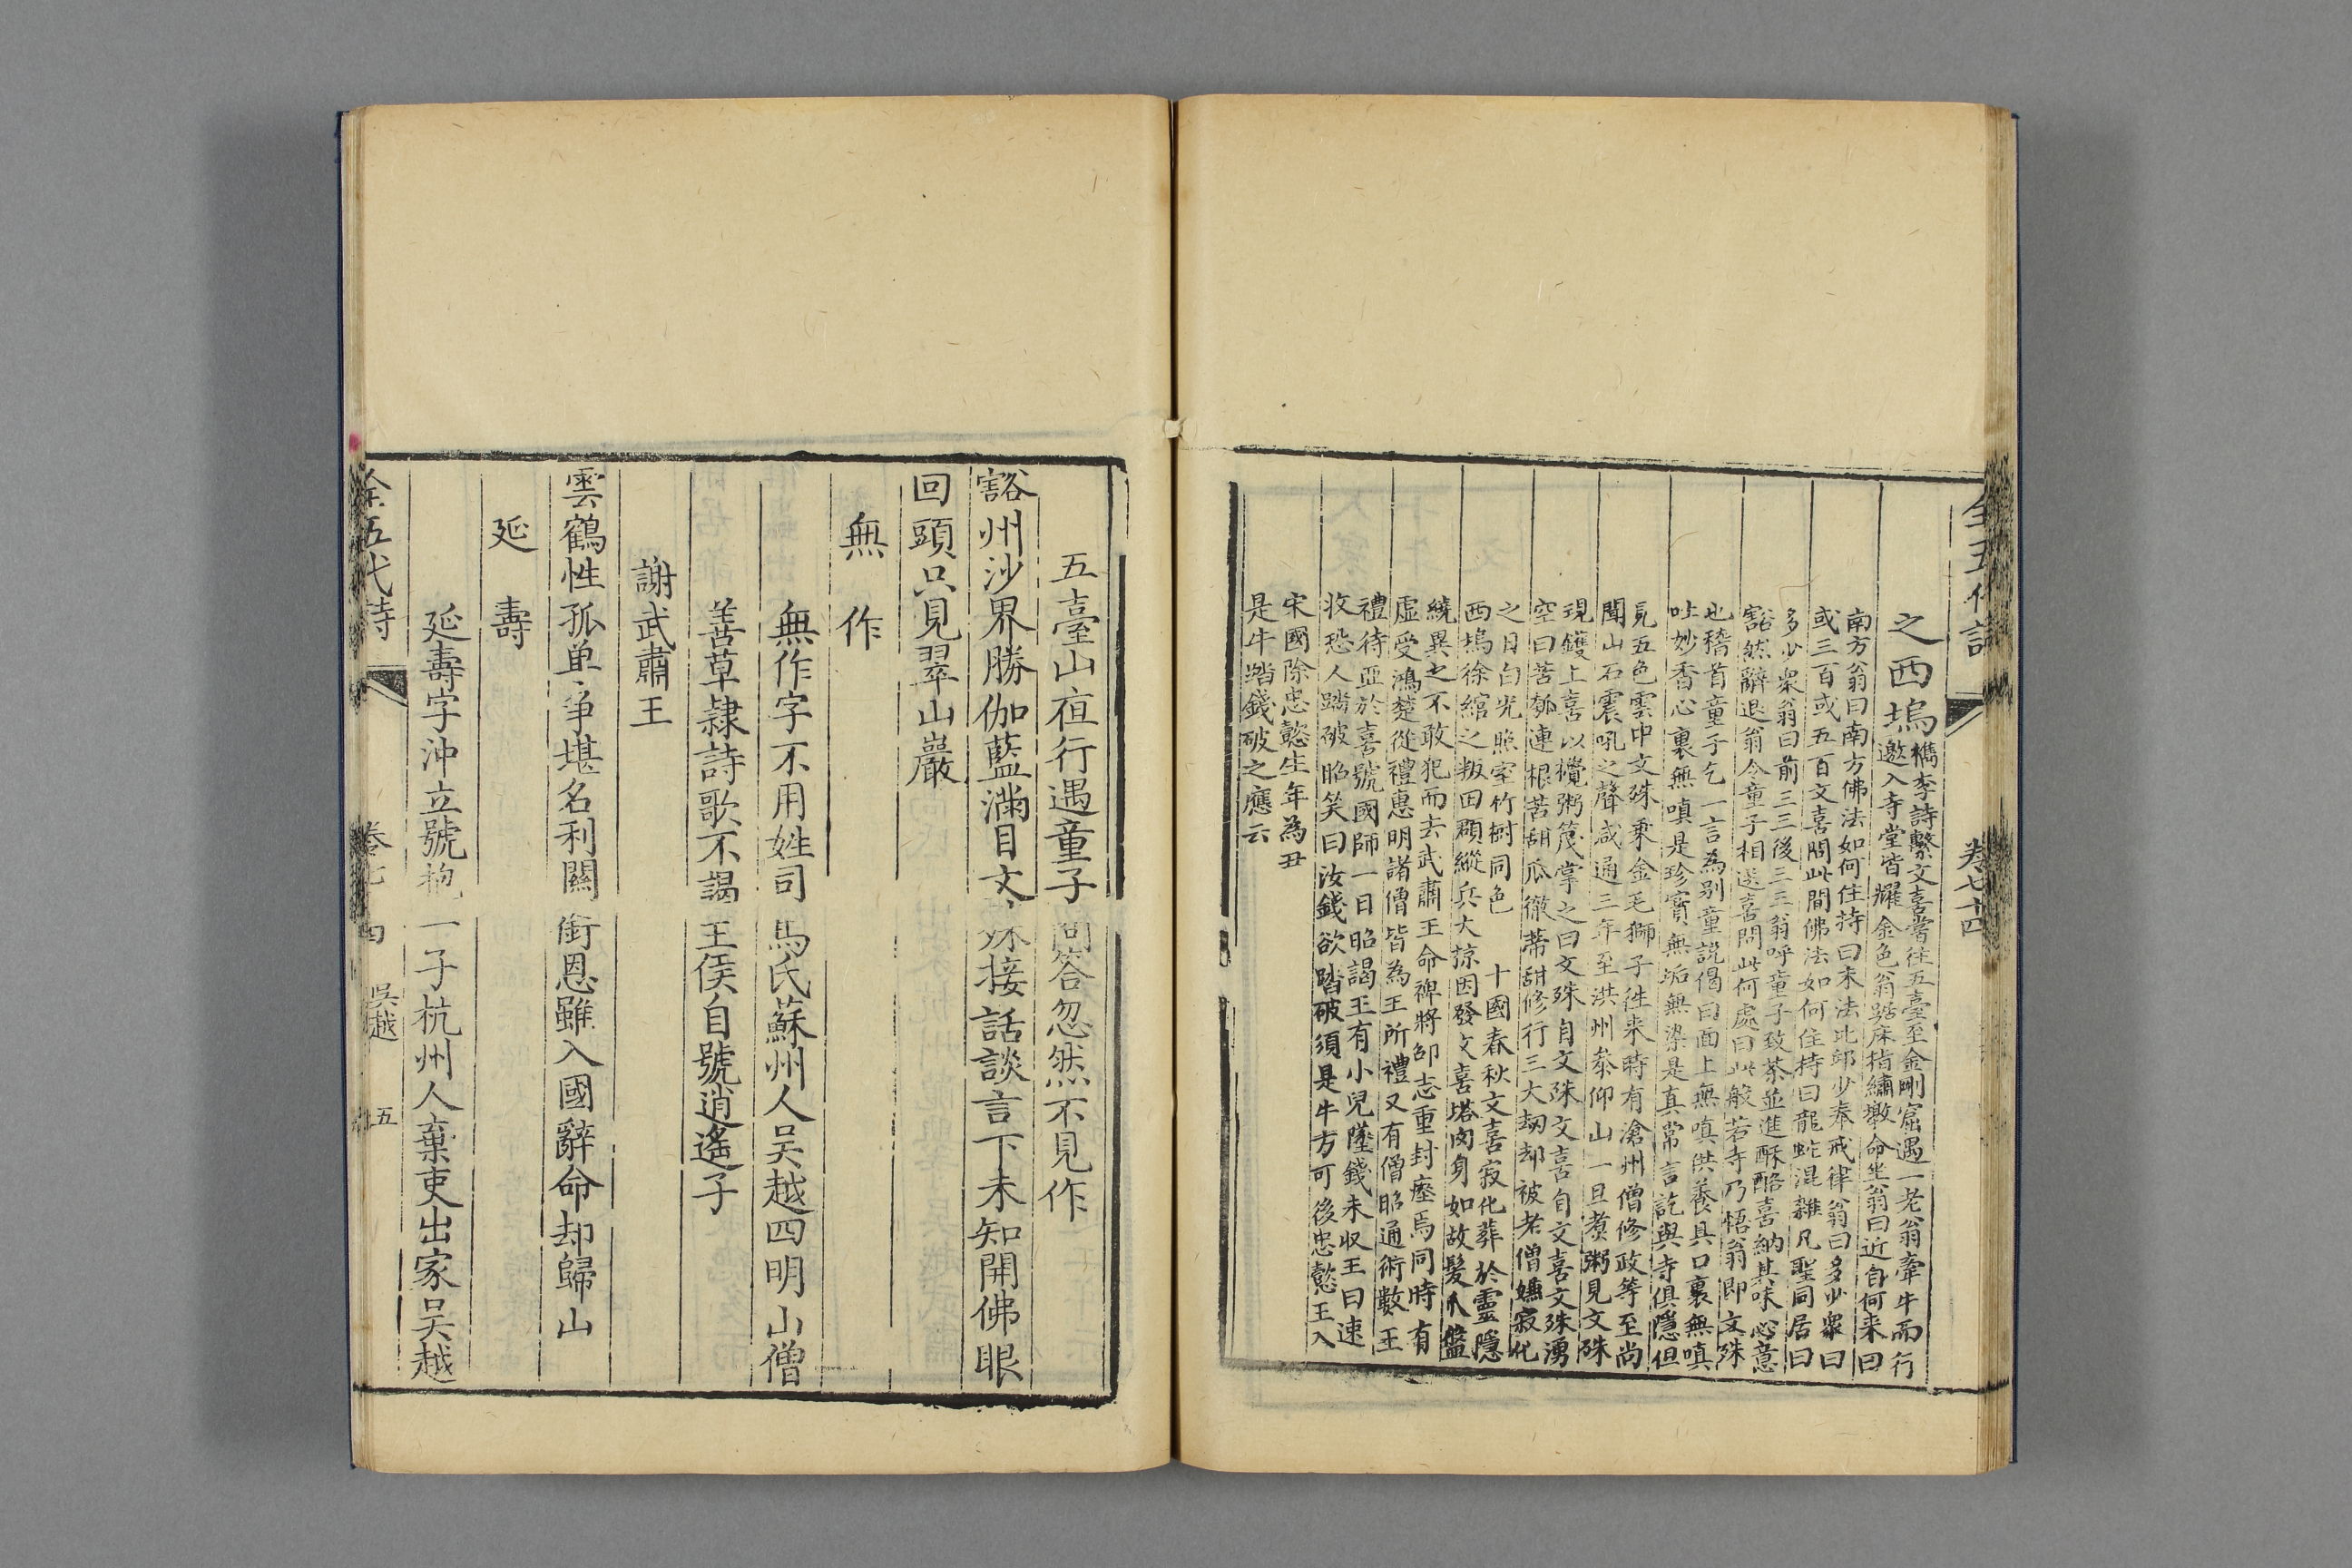 全五代詩
卷七十四
之西塢
檇李詩繫文喜嘗往五臺至金剛窟遇一老翁牽牛而行
邀入寺堂皆耀金色翁踞床指繡墩命坐翁曰近自何来曰
南方翁曰南方佛法如何住持曰末法比邱少奉戒律翁曰多少衆曰
或三百或五百文喜問此間佛法如何住持曰龍蛇混雜凡聖同居曰
多少衆翁曰前三三後三三翁呼童子致茶並進酥酪喜納其味心意
豁然辭退翁令童子相送喜問此何處曰此般若寺乃悟翁即文殊
也稽首童子乞一言為别童説偈曰面上無嗔供養具口裏無嗔
吐妙香心裏無嗔是珍寳無垢無染是真常言訖與寺俱隱但
見五色雲中文殊乘金毛獅子徃来時有滄州僧修政等至尚
聞山石震吼之聲咸通三年至洪州叅仰山一旦煑粥見文殊
現鑊上喜以攪粥篦掌之曰文殊自文殊文喜自文喜文殊湧
空曰苦瓠連根苦甜瓜徹蒂甜修行三大劫却被老僧嫌寂化
之日白光照室竹樹同色　十國春秋文喜寂化葬於靈隱
西塢徐綰之叛田頵縱兵大掠因發文喜塔肉身如故髪爪盤
繞異之不敢犯而去武肅王命裨將邵志重封瘞焉同時有
虛受鴻楚從禮惠明諸僧皆為王所禮又有僧昭通術數王
禮待亞於喜號國師一日昭謁王有小兒墜錢未収王曰速
收恐人踏破昭笑曰汝錢欲踏破須是牛方可後忠懿王入
宋國除忠懿生年為丑
是牛踏錢破之應云
五臺山夜行遇童子問答忽然不見作
豁州沙界勝伽藍滿目文殊接話談言下未知開佛眼
回頭只見翠山巖
無作
無作字不用姓司馬氏蘇州人吳越四明山僧
善草隷詩歌不謁王侯自號逍遙子
謝武肅王
雲鶴性孤单争堪名利關銜恩雖入國辭命却歸山
延壽
延壽字沖立號抱一子杭州人棄吏出家吳越
全五代詩
卷七四
吳越
五